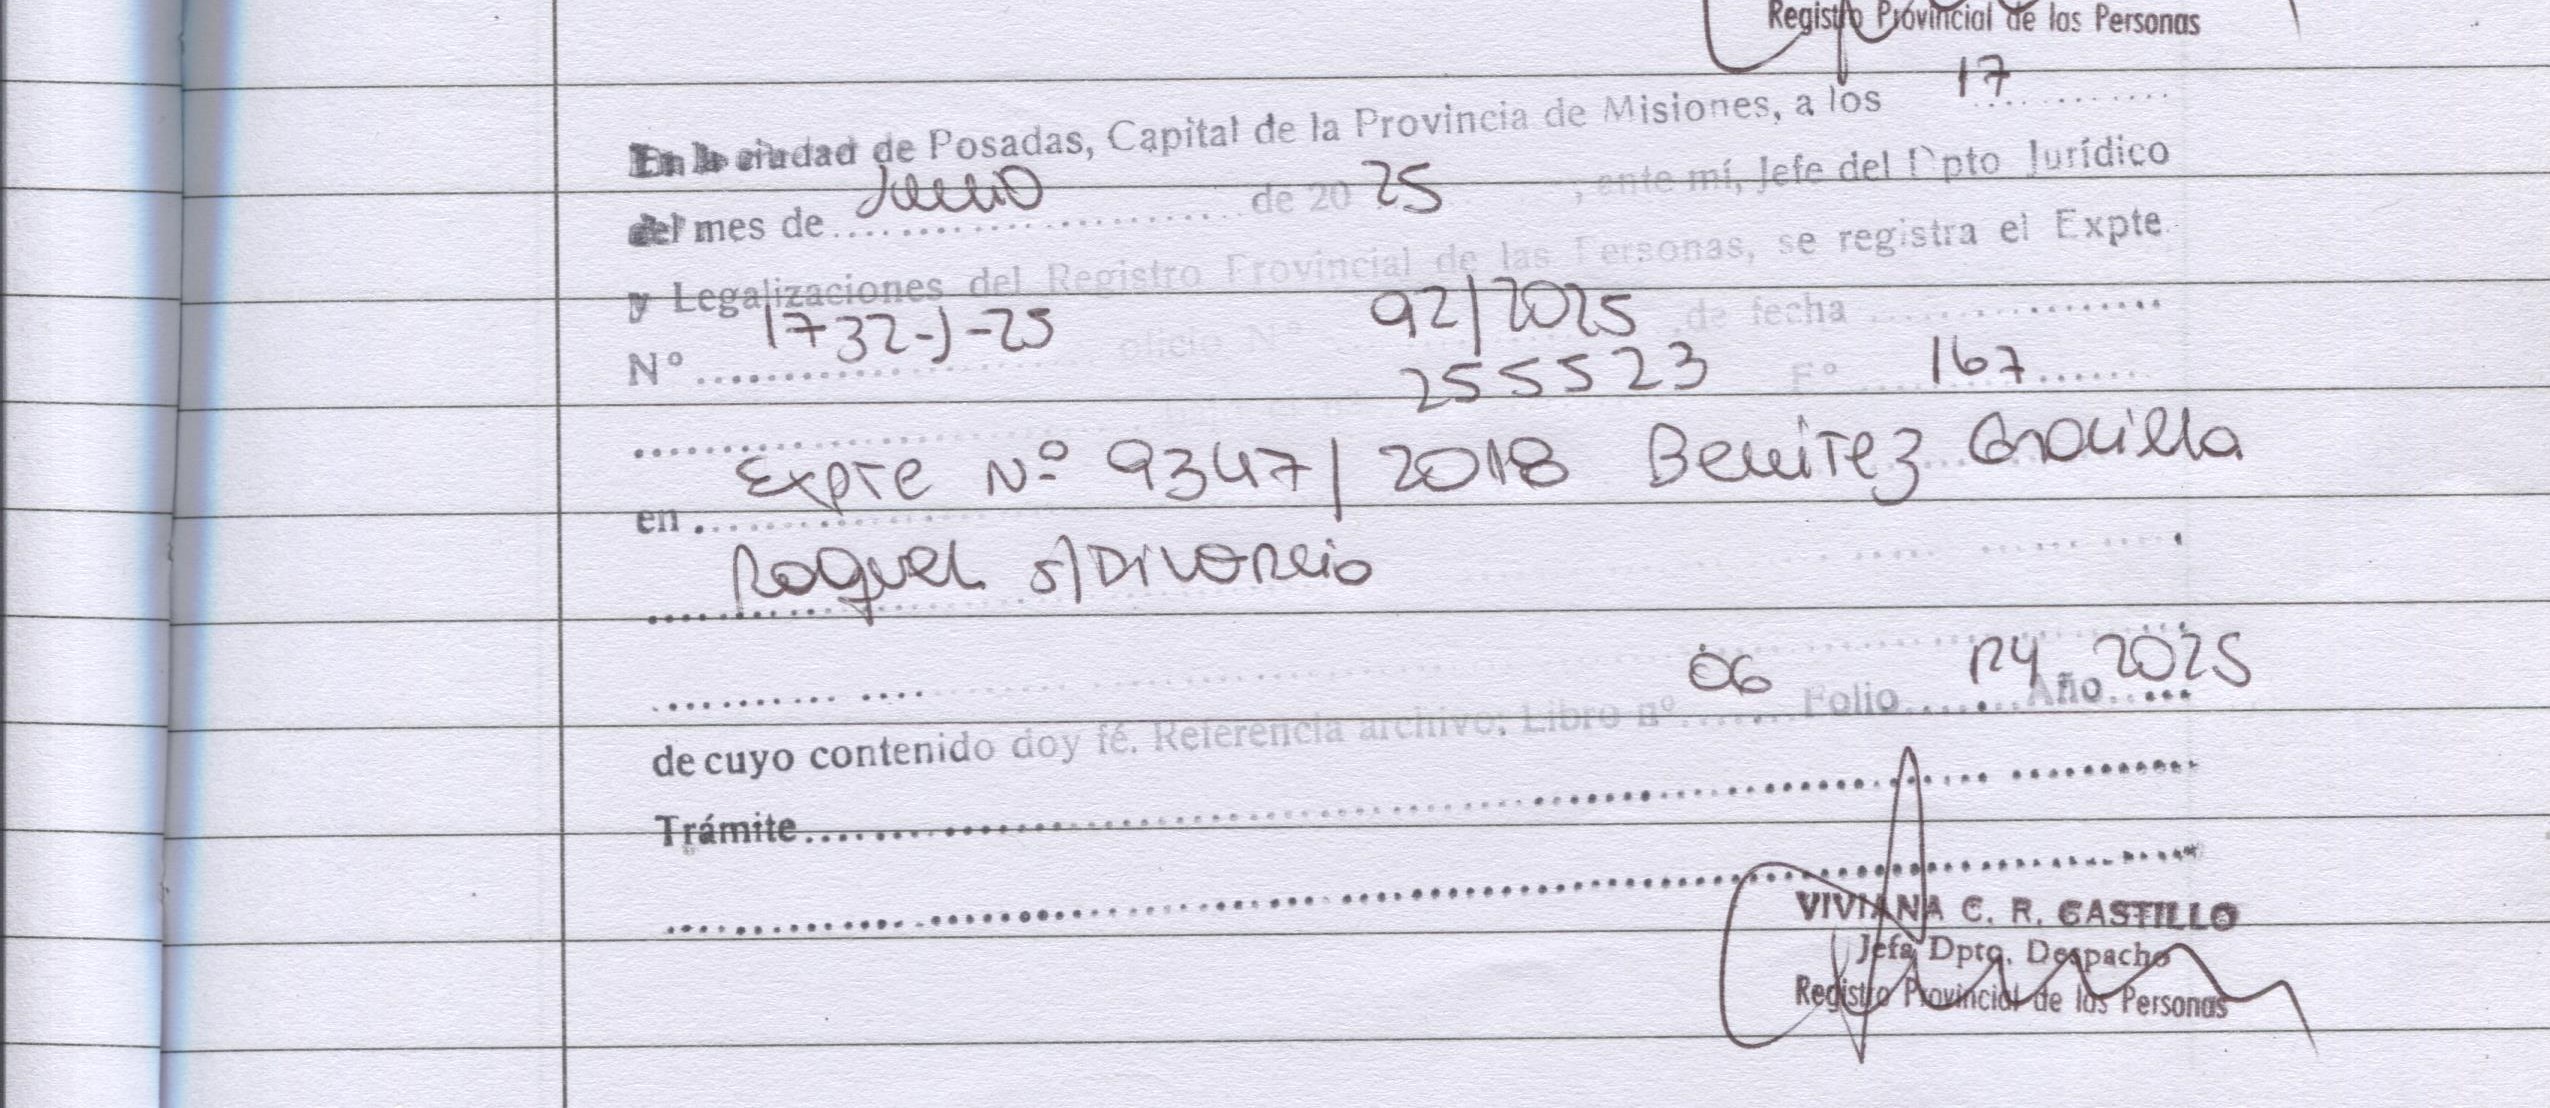 Registro Provincial de las Personas
17
En la ciudad de Posadas, Capital de la Provincia de Misiones, a los ............
del mes de Junio de 20 25, ante mí, Jefe del Dpto Jurídico
y Legalizaciones del Registro Provincial de las Personas, se registra el Expte
Nº 1732-J-25 oficio Nº 92/2025 de fecha ............
255523 Fº 167
en Expte Nº 9347/2018 Benitez Graciela
Raquel s/Divorcio
06 174 2025
de cuyo contenido doy fé. Referencia archivo: Libro nº....... Folio....... Año.....
Trámite............
VIVIANA C. R. CASTILLO
Jefa Dpto. Despacho
Registro Provincial de las Personas